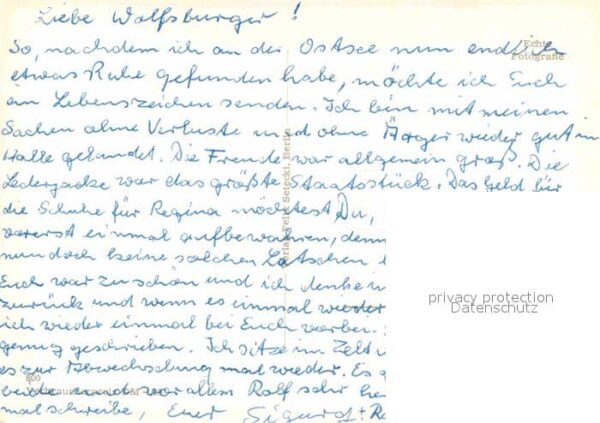 Liebe Wolfsburger!
So, nachdem ich an der Ostsee nun endlich
etwas Ruhe gefunden habe, möchte ich Euch
ein Lebenszeichen senden. Ich bin mit meinen
Sachen ohne Verluste und ohne Ärger wieder gut in
Halle gelandet. Die Freude war allgemein groß. Die
Lederjacke war das größte Staatsstück. Das Geld für
die Schuhe für Regina möchtest Du,
vorerst einmal aufbewahren, denn
nun doch keine solchen Latschen
Euch war zu schön und ich denke
zurück und wenn es einmal wieder
ich wieder einmal bei Euch vorbei.
genug geschrieben. Ich sitze im Zelt
es zur Abwechslung mal wieder. Es
beide und vor allem Rolf sehr
mal schreibe, Euer Sigurd +
Echte
Fotografie
Verlag Felix Setecki, Berlin
600
privacy protection
Datenschutz